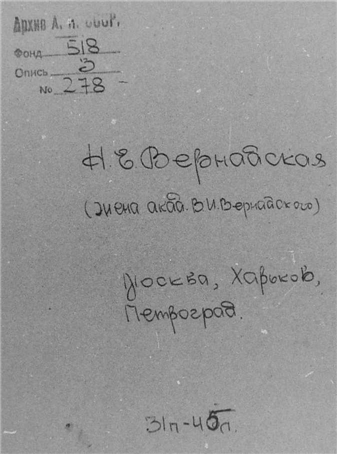 Архив А. Н. СССР.
Фонд 518
Опись 3
№ 278
Н.Е.Вернадская
(жена акад. В.И.Вернадского)
Москва, Харьков,
Петроград.
31п-45п.